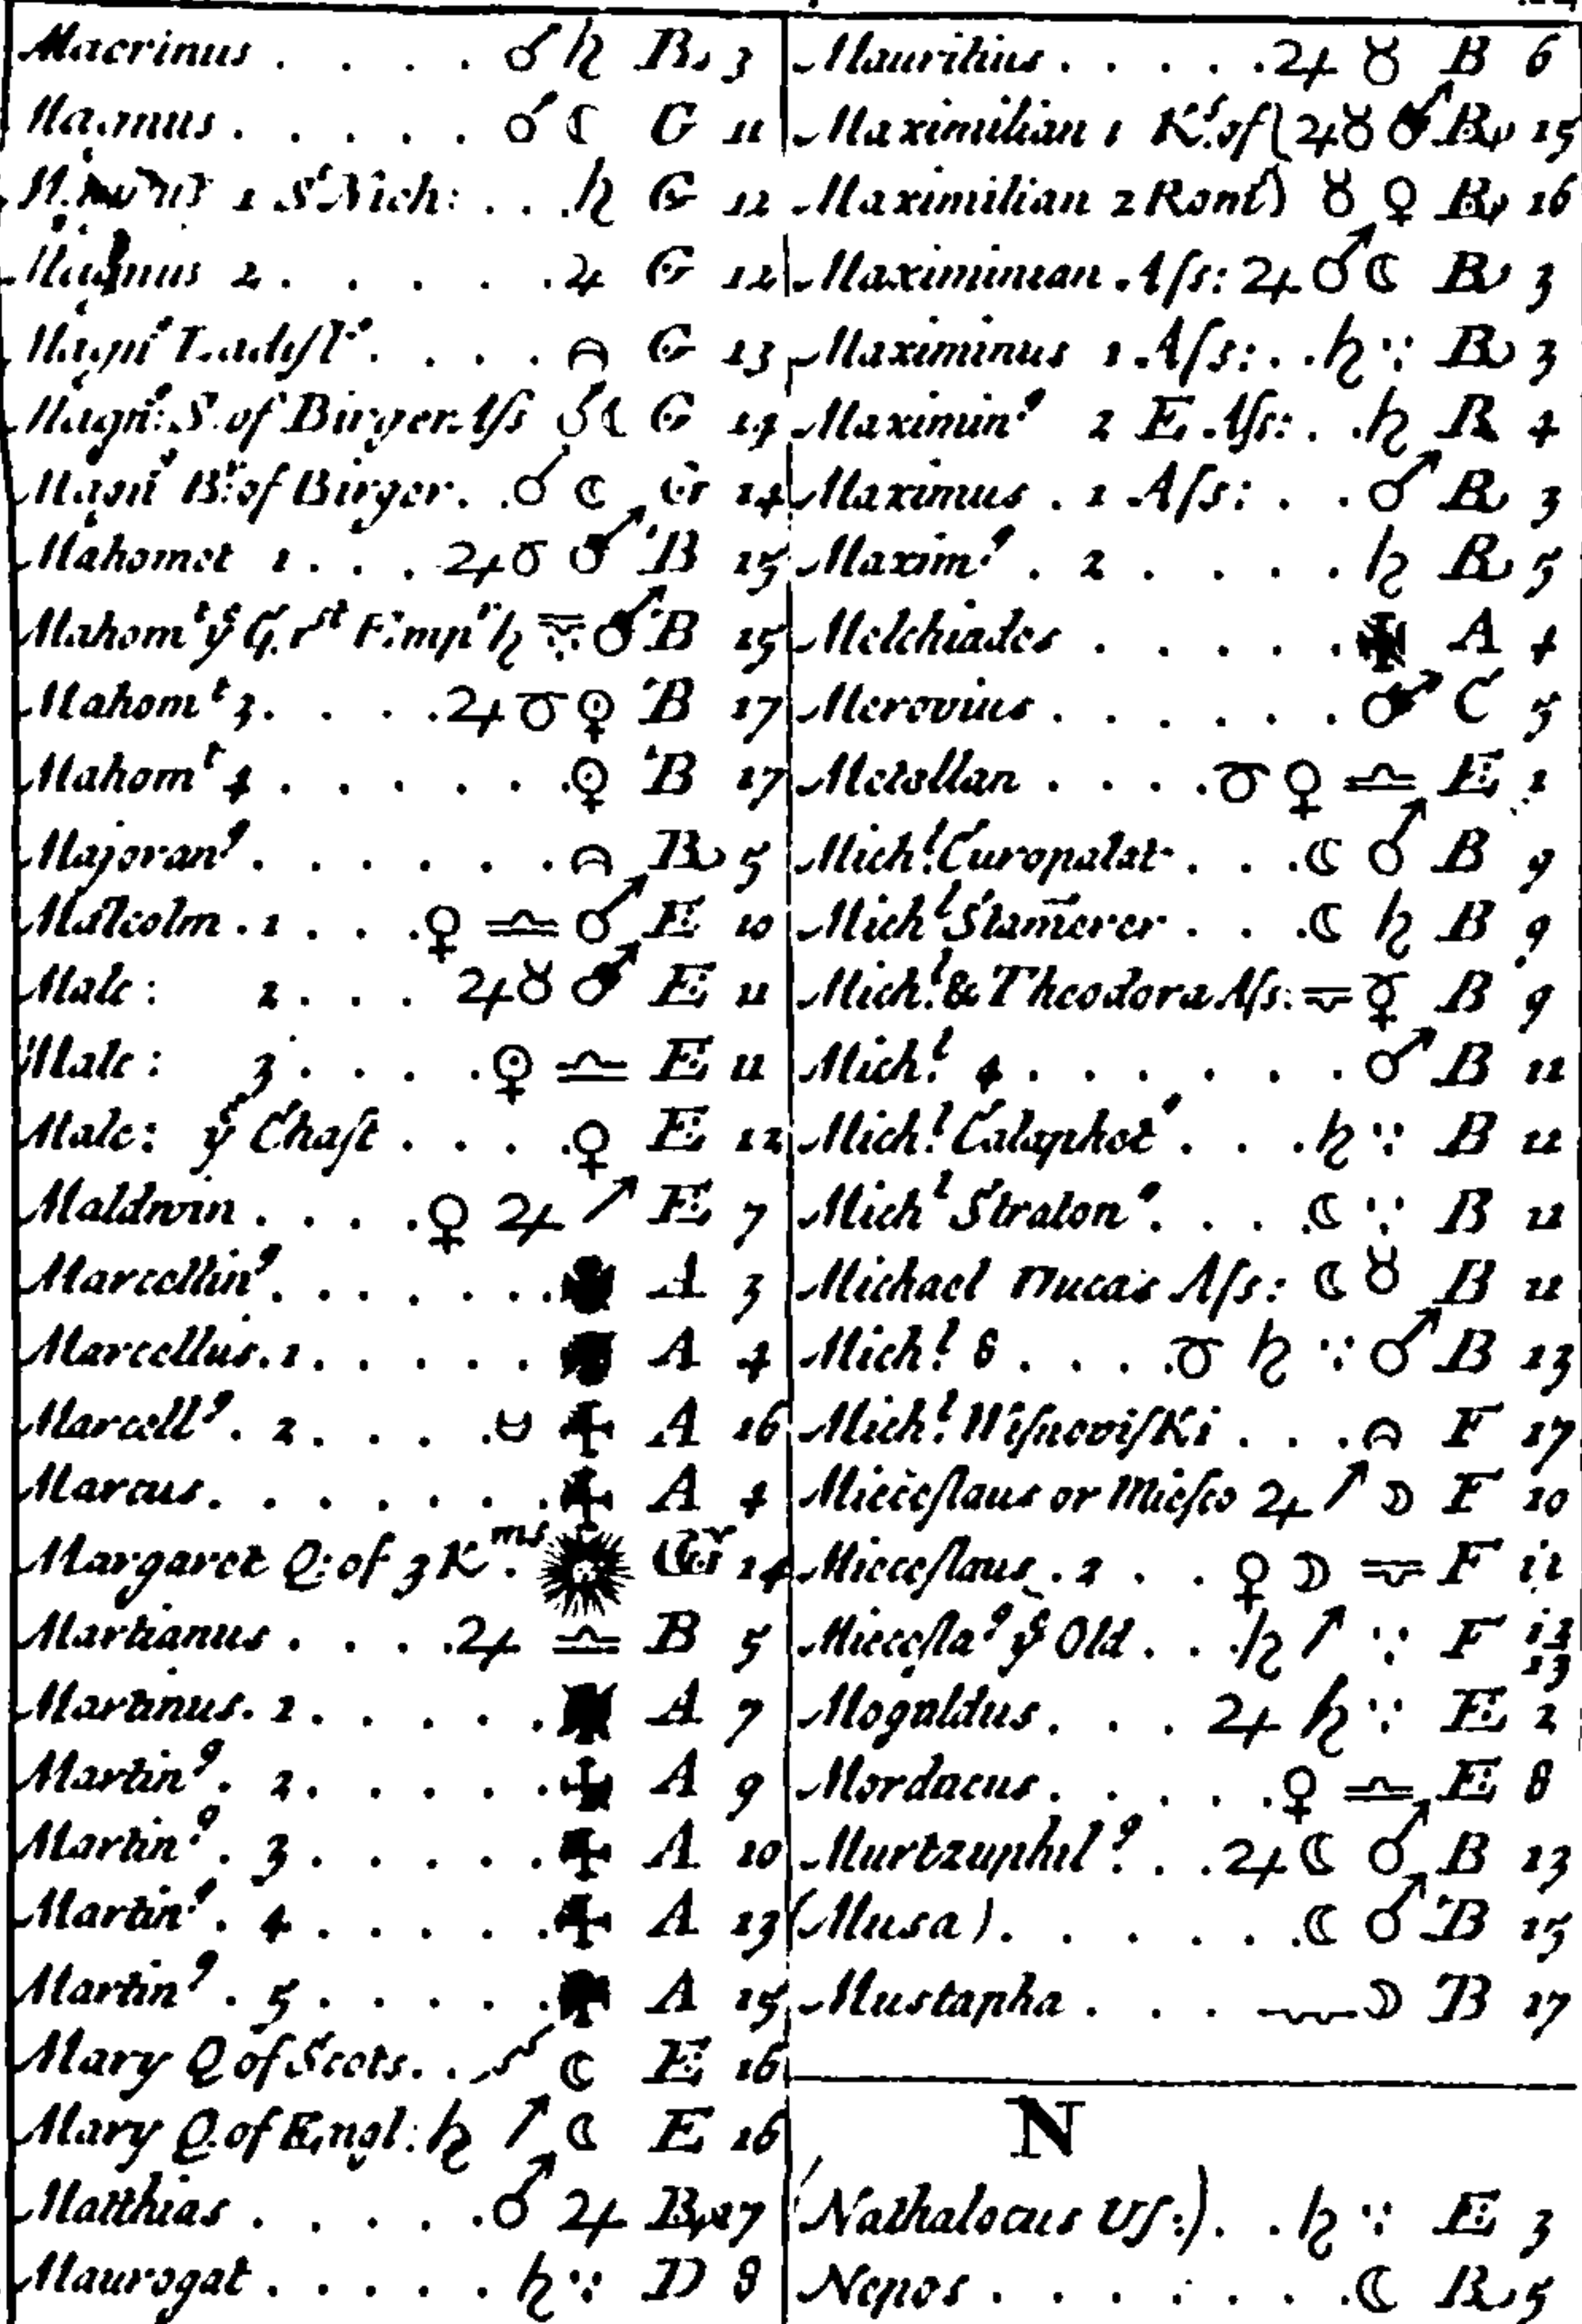 Macrinus . . . . ♂ ♄ B 3
Magnus . . . . . ♂ ☾ G 11
1 St Nich: . . . ♄ G 12
Magnus 2 . . . . . ♃ G 12
Magnꝰ Ladisl . . . . G 13
Magnꝰ: S. of Birger Aſs ♂ ☾ G 14
Magnꝰ Br: of Birger . . ♂ ☾ G 14
Mahomet 1 . . . ♃ ♉ ♂ B 15
Mahomt ye G. 1st Emp ♄ ♂ B 15
Mahomt 3 . . . . ♃ ♉ ♀ B 17
Mahomt 4 . . . . . . ♀ B 17
Majoranꝰ . . . . . . B 5
Malcolm . 1 . . . ♀ ♎ ♂ E 10
Malc: 2 . . . ♃ ♉ ♂ E 11
Malc: 3 . . . . ♀ ♎ E 11
Malc: ye Chaſt . . . . ♀ E 12
Maldwin . . . . ♀ ♃ ↗ E 7
Marcellinꝰ . . . . . . . ✠ A 3
Marcellus . 1 . . . . . ✠ A 4
Marcellꝰ . 2 . . . . ✠ A 16
Marcus . . . . . . . ✠ A 4
Margaret Q: of 3 Kms . 14
Martianus . . . . ♃ ♎ B 5
Martinus . 1 . . . . . ✠ A 7
Martinꝰ . 2 . . . . . ✠ A 9
Martinꝰ . 3 . . . . . ✠ A 10
Martinꝰ . 4 . . . . . ✠ A 13
Martinꝰ . 5 . . . . . ✠ A 15
Mary Q of Scots . . ☾ E 16
Mary Q. of Engl: ♄ ↗ ☾ E 16
Matthias . . . . . ♂ ♃ B 17
Maurogat . . . . . ♄ ∵ D 8
Mauritius . . . . . ♃ ♉ B 6
Maximilian 1 Ks. of ♃ ♉ ♂ B 15
Maximilian 2 Rom) ♉ ♀ B 16
Maximinian Aſs: ♃ ♂ ☾ B 3
Maximinus 1 Aſs: . . ♄ ∵ B 3
Maximinꝰ 2 E Aſs: . . ♄ B 4
Maximus . 1 Aſs: . . ♂ B 3
Maximꝰ . 2 . . . . . ♄ B 5
Melchiades . . . . . ✠ A 4
Merovius . . . . . . ♂ C 5
Metellan . . . . ♉ ♀ ♎ E 1
Michl. Curopalat . . . ☾ ♂ B 9
Michl Stam̄erer . . . ☾ ♄ B 9
Michl. & Theodora Aſs: B 9
Michl. 4 . . . . . . ♂ B 11
Michl. Calaphotꝰ . . . ♄ ∵ B 11
Michl Stratonꝰ . . . ☾ ∵ B 11
Michael Ducas Aſs: ☾ ♉ B 11
Michl. 8 . . . . ♉ ♄ ∵ ♂ B 13
Michl. Wiſnoviſki . . . F 17
Mieceſlaus or Mieſco ♃ ↗ ☽ F 10
Mieceſlaus . 2 . . . ♀ ☽ F 12
Mieceſlaꝰ ye Old . . ♄ ↗ ∵ F 12 13
Mogaldus . . . ♃ ♄ ∵ E 2
Mordacus . . . . . ♀ ♎ E 8
Murtzuphilꝰ . . . ♃ ☾ ♂ B 13
(Musa) . . . . . . ☾ ♂ B 15
Mustapha . . . ☽ B 17
N
(Nathalocus Uſ:) . . ♄ ∵ E 3
Nepos . . . . . . . ☾ B 5